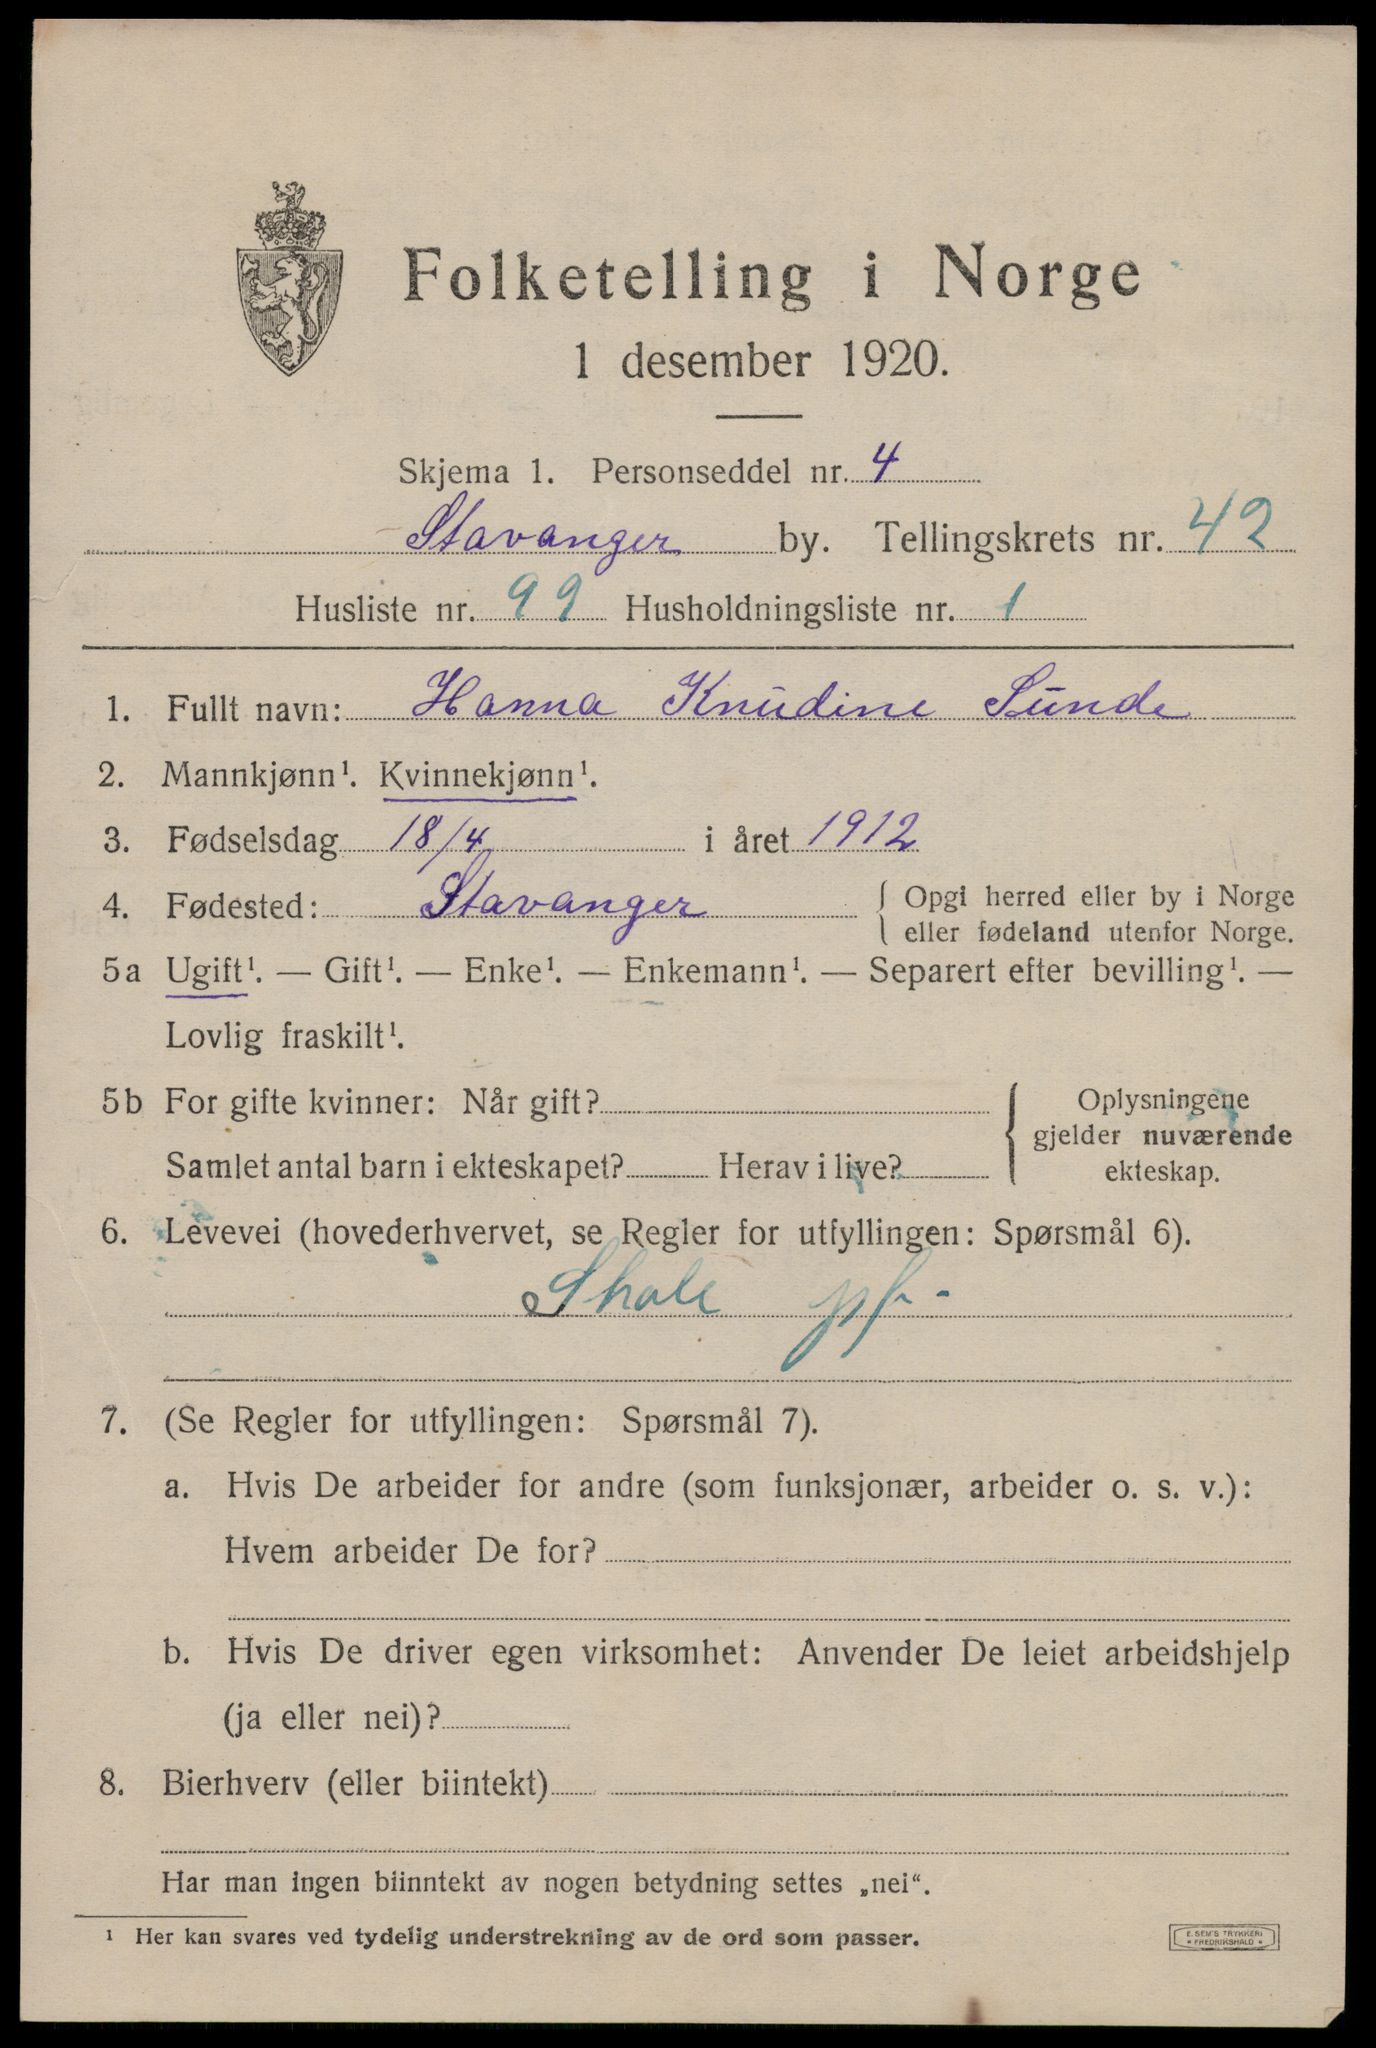 Folketelling i Norge
1 desember 1920.
Skjema 1. Personseddel nr. 4
Stavanger by. Tellingskrets nr. 42
Husliste nr. 99 Husholdningsliste nr. 1
1. Fullt navn: Hanna Knudine Sunde
2. Mannkjønn¹. Kvinnekjønn¹.
3. Fødselsdag 18/4 i året 1912
4. Fødested: Stavanger { Opgi herred eller by i Norge
eller fødeland utenfor Norge.
5a Ugift¹. — Gift¹. — Enke¹. — Enkemann¹. — Separert efter bevilling¹. —
Lovlig fraskilt¹.
5b For gifte kvinner: Når gift? { Oplysningene
gjelder nuværende
Samlet antal barn i ekteskapet? Herav i live? ekteskap.
6. Levevei (hovederhvervet, se Regler for utfyllingen: Spørsmål 6).
Skole pf.
7. (Se Regler for utfyllingen: Spørsmål 7).
a. Hvis De arbeider for andre (som funksjonær, arbeider o. s. v.):
Hvem arbeider De for?
b. Hvis De driver egen virksomhet: Anvender De leiet arbeidshjelp
(ja eller nei)?
8. Bierhverv (eller biintekt)
Har man ingen biinntekt av nogen betydning settes „nei".
¹ Her kan svares ved tydelig understrekning av de ord som passer.
E. SEM'S TRYKKERI
* FREDRIKSHALD *